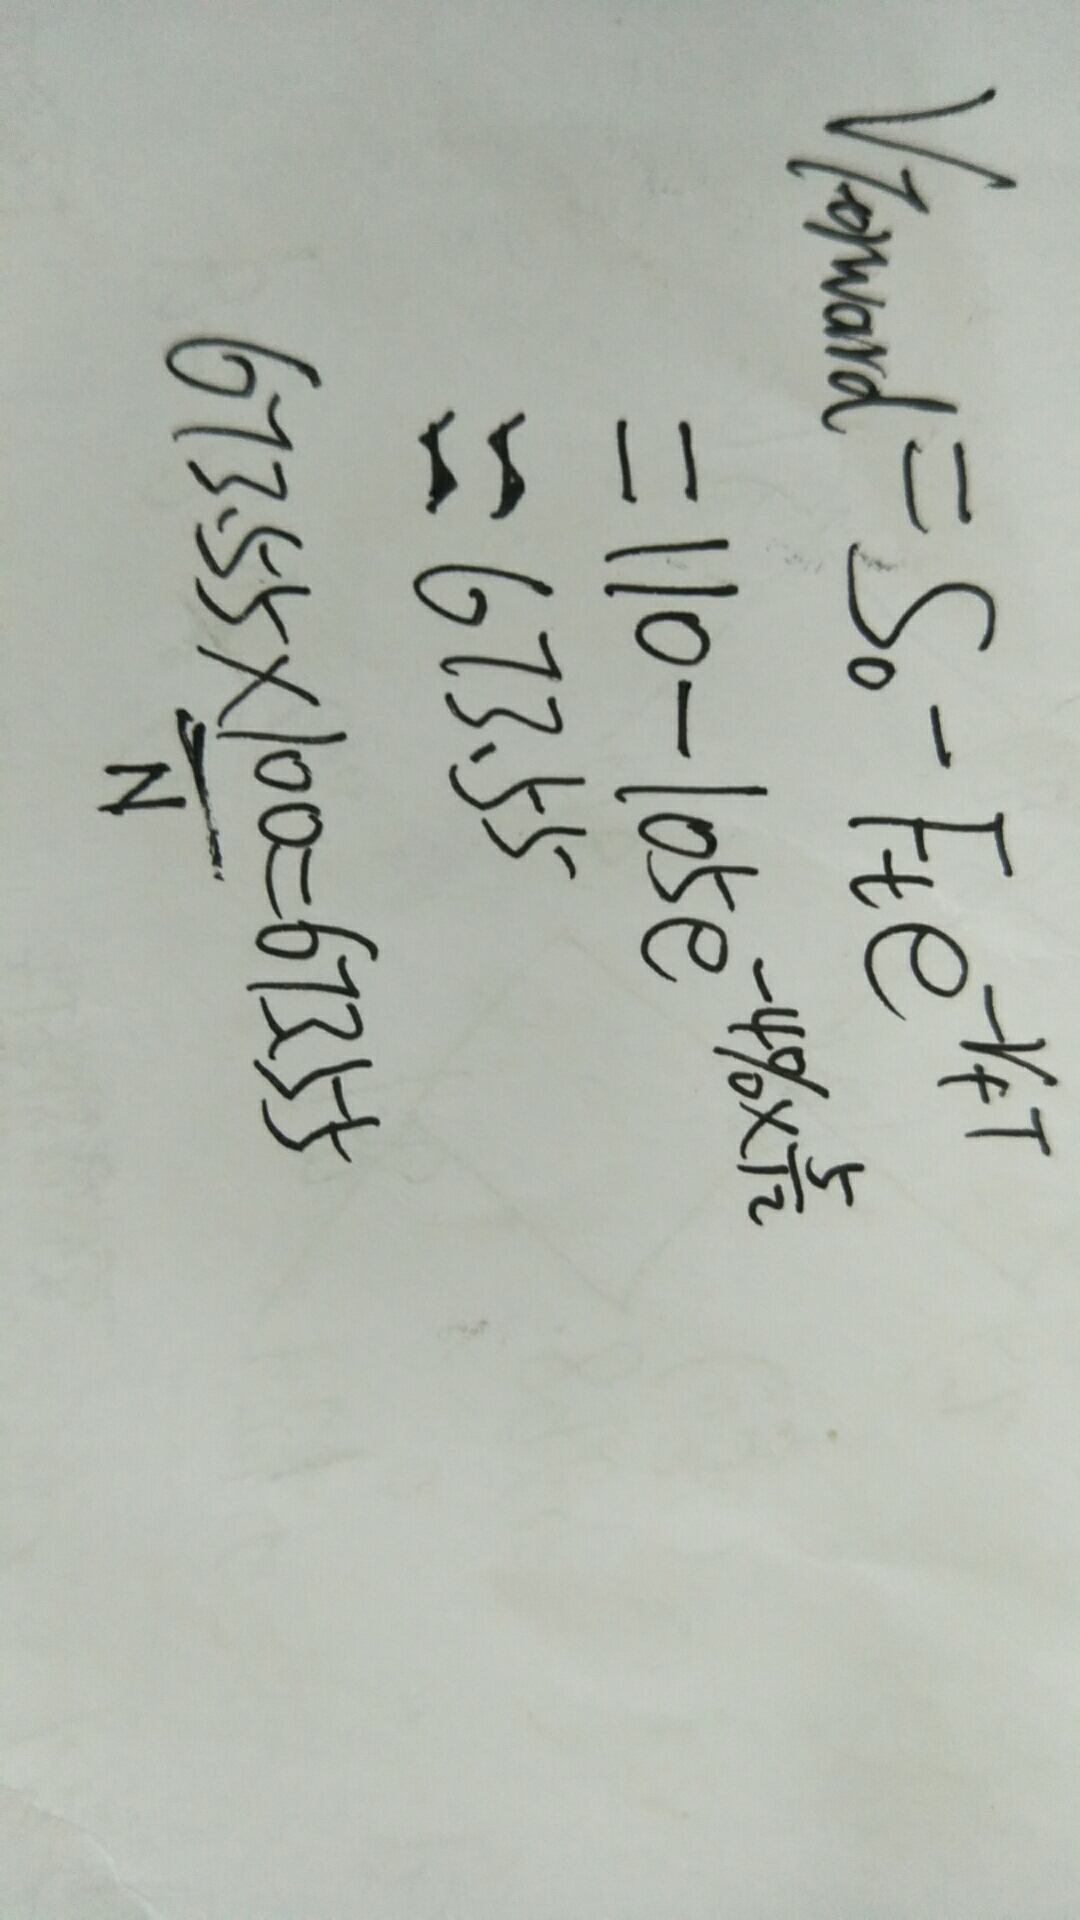 Vforward = S₀ - Fₜe^-rfT
= 110 - 105e^-4%×5/12
≈ 673.55
673.55×100=67355
N